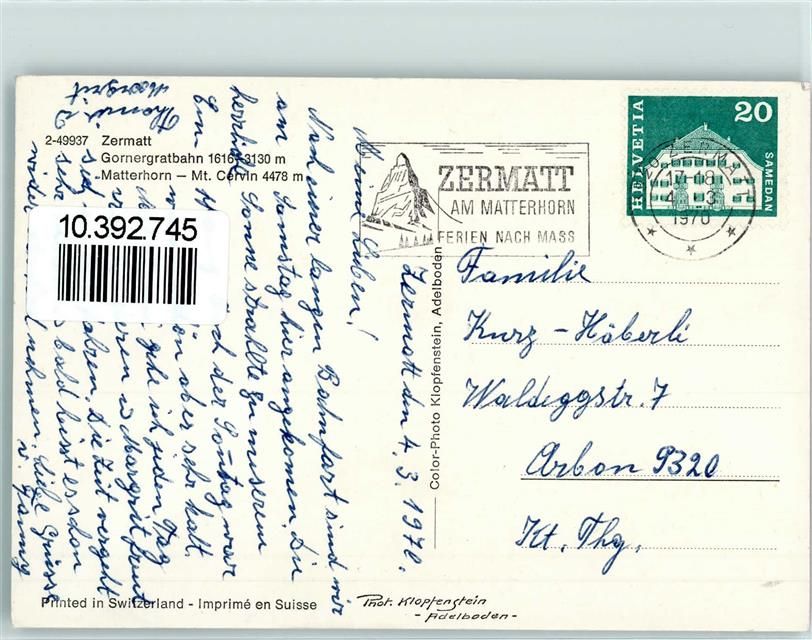 2-49937 Zermatt
Gornergratbahn 1616-3130 m
Matterhorn – Mt. Cervin 4478 m
10.392.745
ZERMATT
AM MATTERHORN
FERIEN NACH MASS
HELVETIA
20
SAMEDAN
ZERMATT
17-18
4. 3.
1970
Zermatt den 4. 3. 1970.
Meine Lieben!
Nach einer langen Bahnfart sind wir
am Samstag hier angekomen. Die
herrliche Sonne strahlte zu unserem
der Sontag war
schön aber sehr kalt.
gehe ich jeden Tag
u Margrit fährt
Die Zeit vergeht
sehr bald heisst es schon
wieder nehmen. Liebe Grüsse
v. Fanny
Thomi u
Margrit
Familie
Kurz - Häberli
Waldeggstr. 7
Arbon 9320
Kt. Thg.
Color-Photo Klopfenstein, Adelboden
Printed in Switzerland - Imprimé en Suisse
Phot. Klopfenstein
- Adelboden -